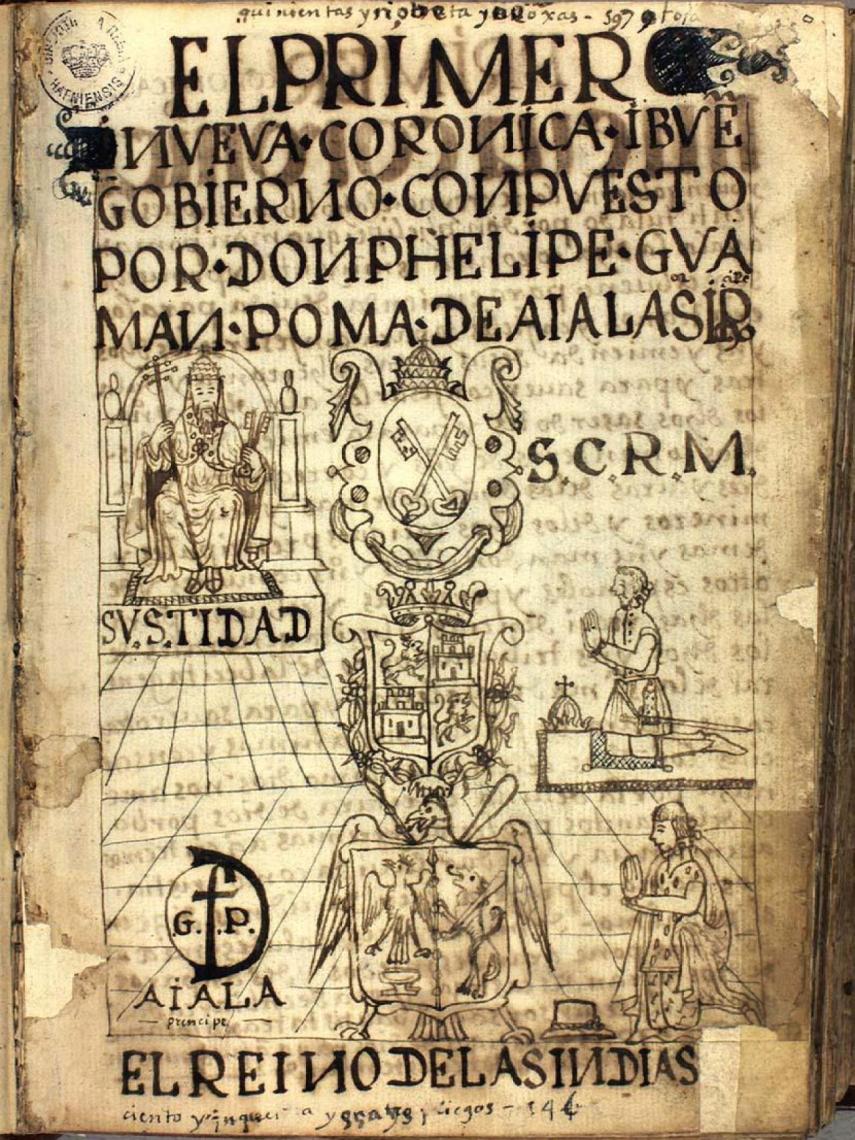 quinientas y nobenta y hoxas - 597 foja
EL PRIMER
NVEVA·CORONICA·IBVE
GOBIERNO·CONPVESTO
POR·DON PHELIPE·GVA
MAN·POMA·DEAIALA
S.C.R.M.
SV.S.TIDAD
G. P.
AIALA
principe
EL REINO DE LAS INDIAS
ciento y a y pliegos - 146
HAFNIENSIS